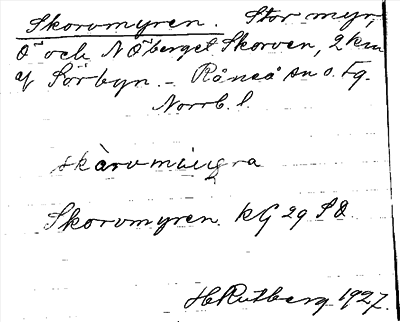 Skorvmyren. Stor myr,
O och N O berget Skorven, 2 km
af Sörbyn. - Råneå sn o. Fg.
Norrb. l.
skàrvmẁųra
Skorvmyren. KG 29 SO
H Rutberg 1927.